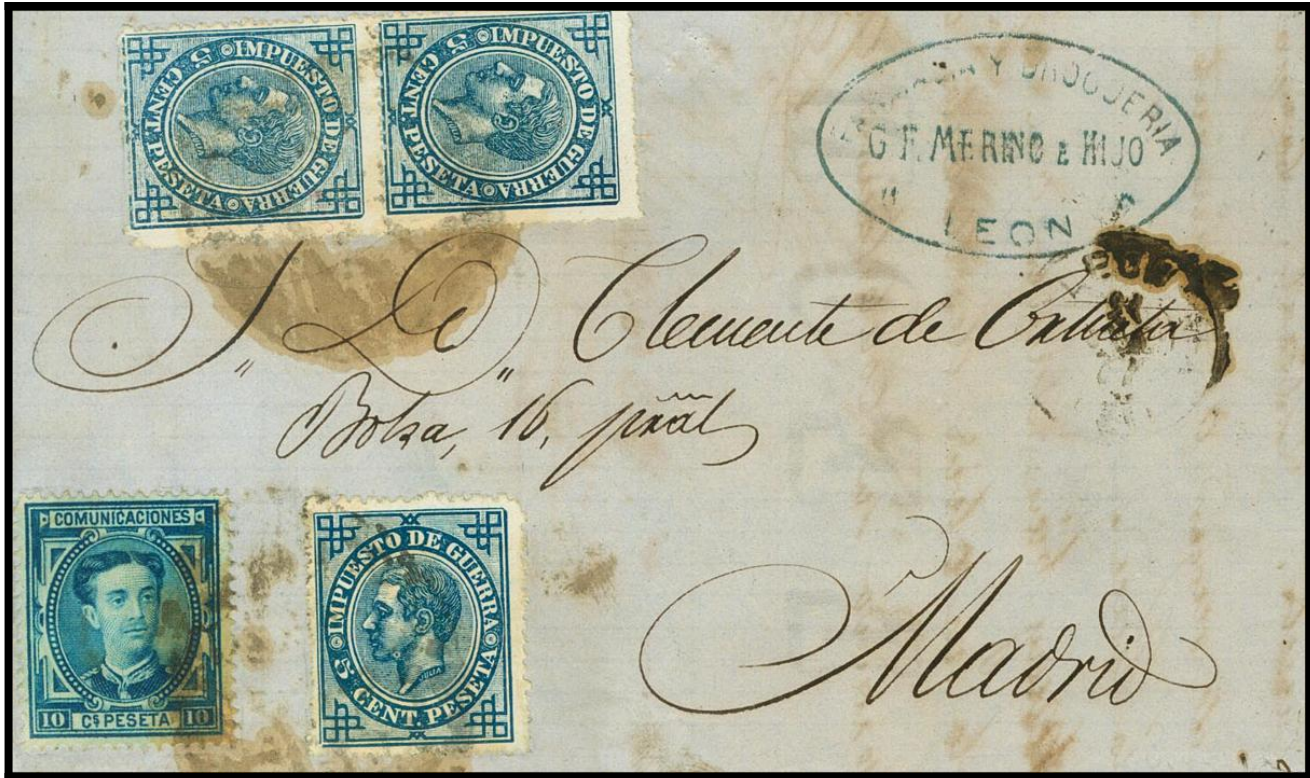 IMPUESTO DE GUERRA
5 CENT. PESETA
IMPUESTO DE GUERRA
5 CENT. PESETA
FARMACIA Y DROGUERIA
G. F. MERINO E HIJO
LEON
S. D. Clemente de
Bolsa, 16, pral
Madrid
COMUNICACIONES
10 Cs PESETA 10
IMPUESTO DE GUERRA
5 CENT. PESETA
JULIA